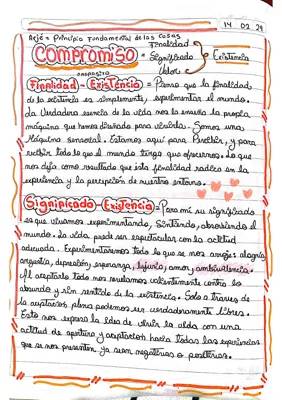 14 02 24
Arjé = Principio Fundamental de las Cosas
Finalidad
COMPROMISO = Significado Existencia
Valor
Finalidad - Existencia = Pienso que la finalidad
de la existencia es simplemente, experimentar el mundo.
La verdadera esencia de la vida nos la enseña la propia
máquina que hemos diseñado para vivirla. Somos una
Máquina sensorial. Estamos aquí para Percibir, y para
recibir todo lo que el mundo tenga que ofrecernos. Lo que
nos deja como resultado que esta finalidad radica en la
experiencia y la percepción de nuestro entorno.
Significado - Existencia = Para mí su significado
es que vivamos experimentando, Sintiendo, absorbiendo el
mundo. La vida puede ser espectacular con la actitud
adecuada. Experimentaremos todo lo que se nos arroje: alegría
angustia, depresión, esperanza, lujuria, amor, ambivalencia.
Al aceptarlo todo nos revelamos valientemente contra lo
absurdo y sin sentido de la existencia. Solo a través de
la aceptación plena podemos ser verdaderamente libres.
Esto nos expresa la idea de vivir la vida con una
actitud de apertura y aceptación hacia todas las experiencias
que se nos presenten, ya sean negativas o positivas.